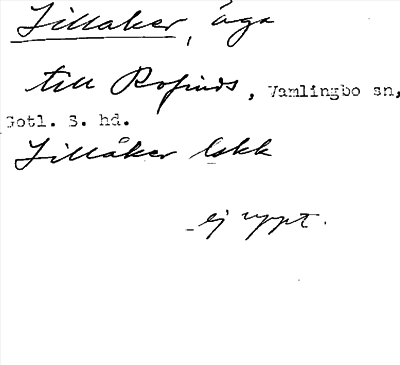 Lillåker, äga
till Rofinds, Vamlingbo sn,
Gotl. S. hd.
Lillåker Lskk
- ej uppt.